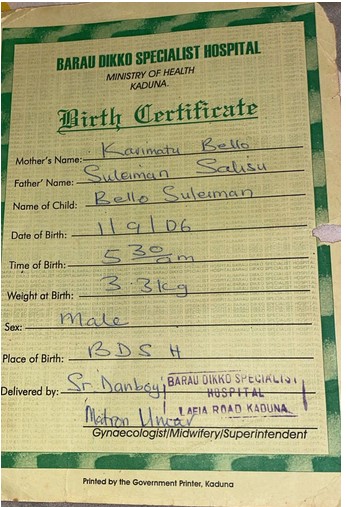 BARAU DIKKO SPECIALIST HOSPITAL
MINISTRY OF HEALTH
KADUNA.
Birth Certificate
Mother's Name: Karimatu Bello
Father' Name: Suleiman Salisu
Name of Child: Bello Suleiman
Date of Birth: 1/9/06
Time of Birth: 5 30 am
Weight at Birth: 3.3kg
Sex: Male
Place of Birth: BDSH
Delivered by: Sr. Danboyi
BARAU DIKKO SPECIALIST
HOSPITAL
LAFIA ROAD KADUNA.
Matron Umar
Gynaecologist/Midwifery/Superintendent
Printed by the Government Printer, Kaduna